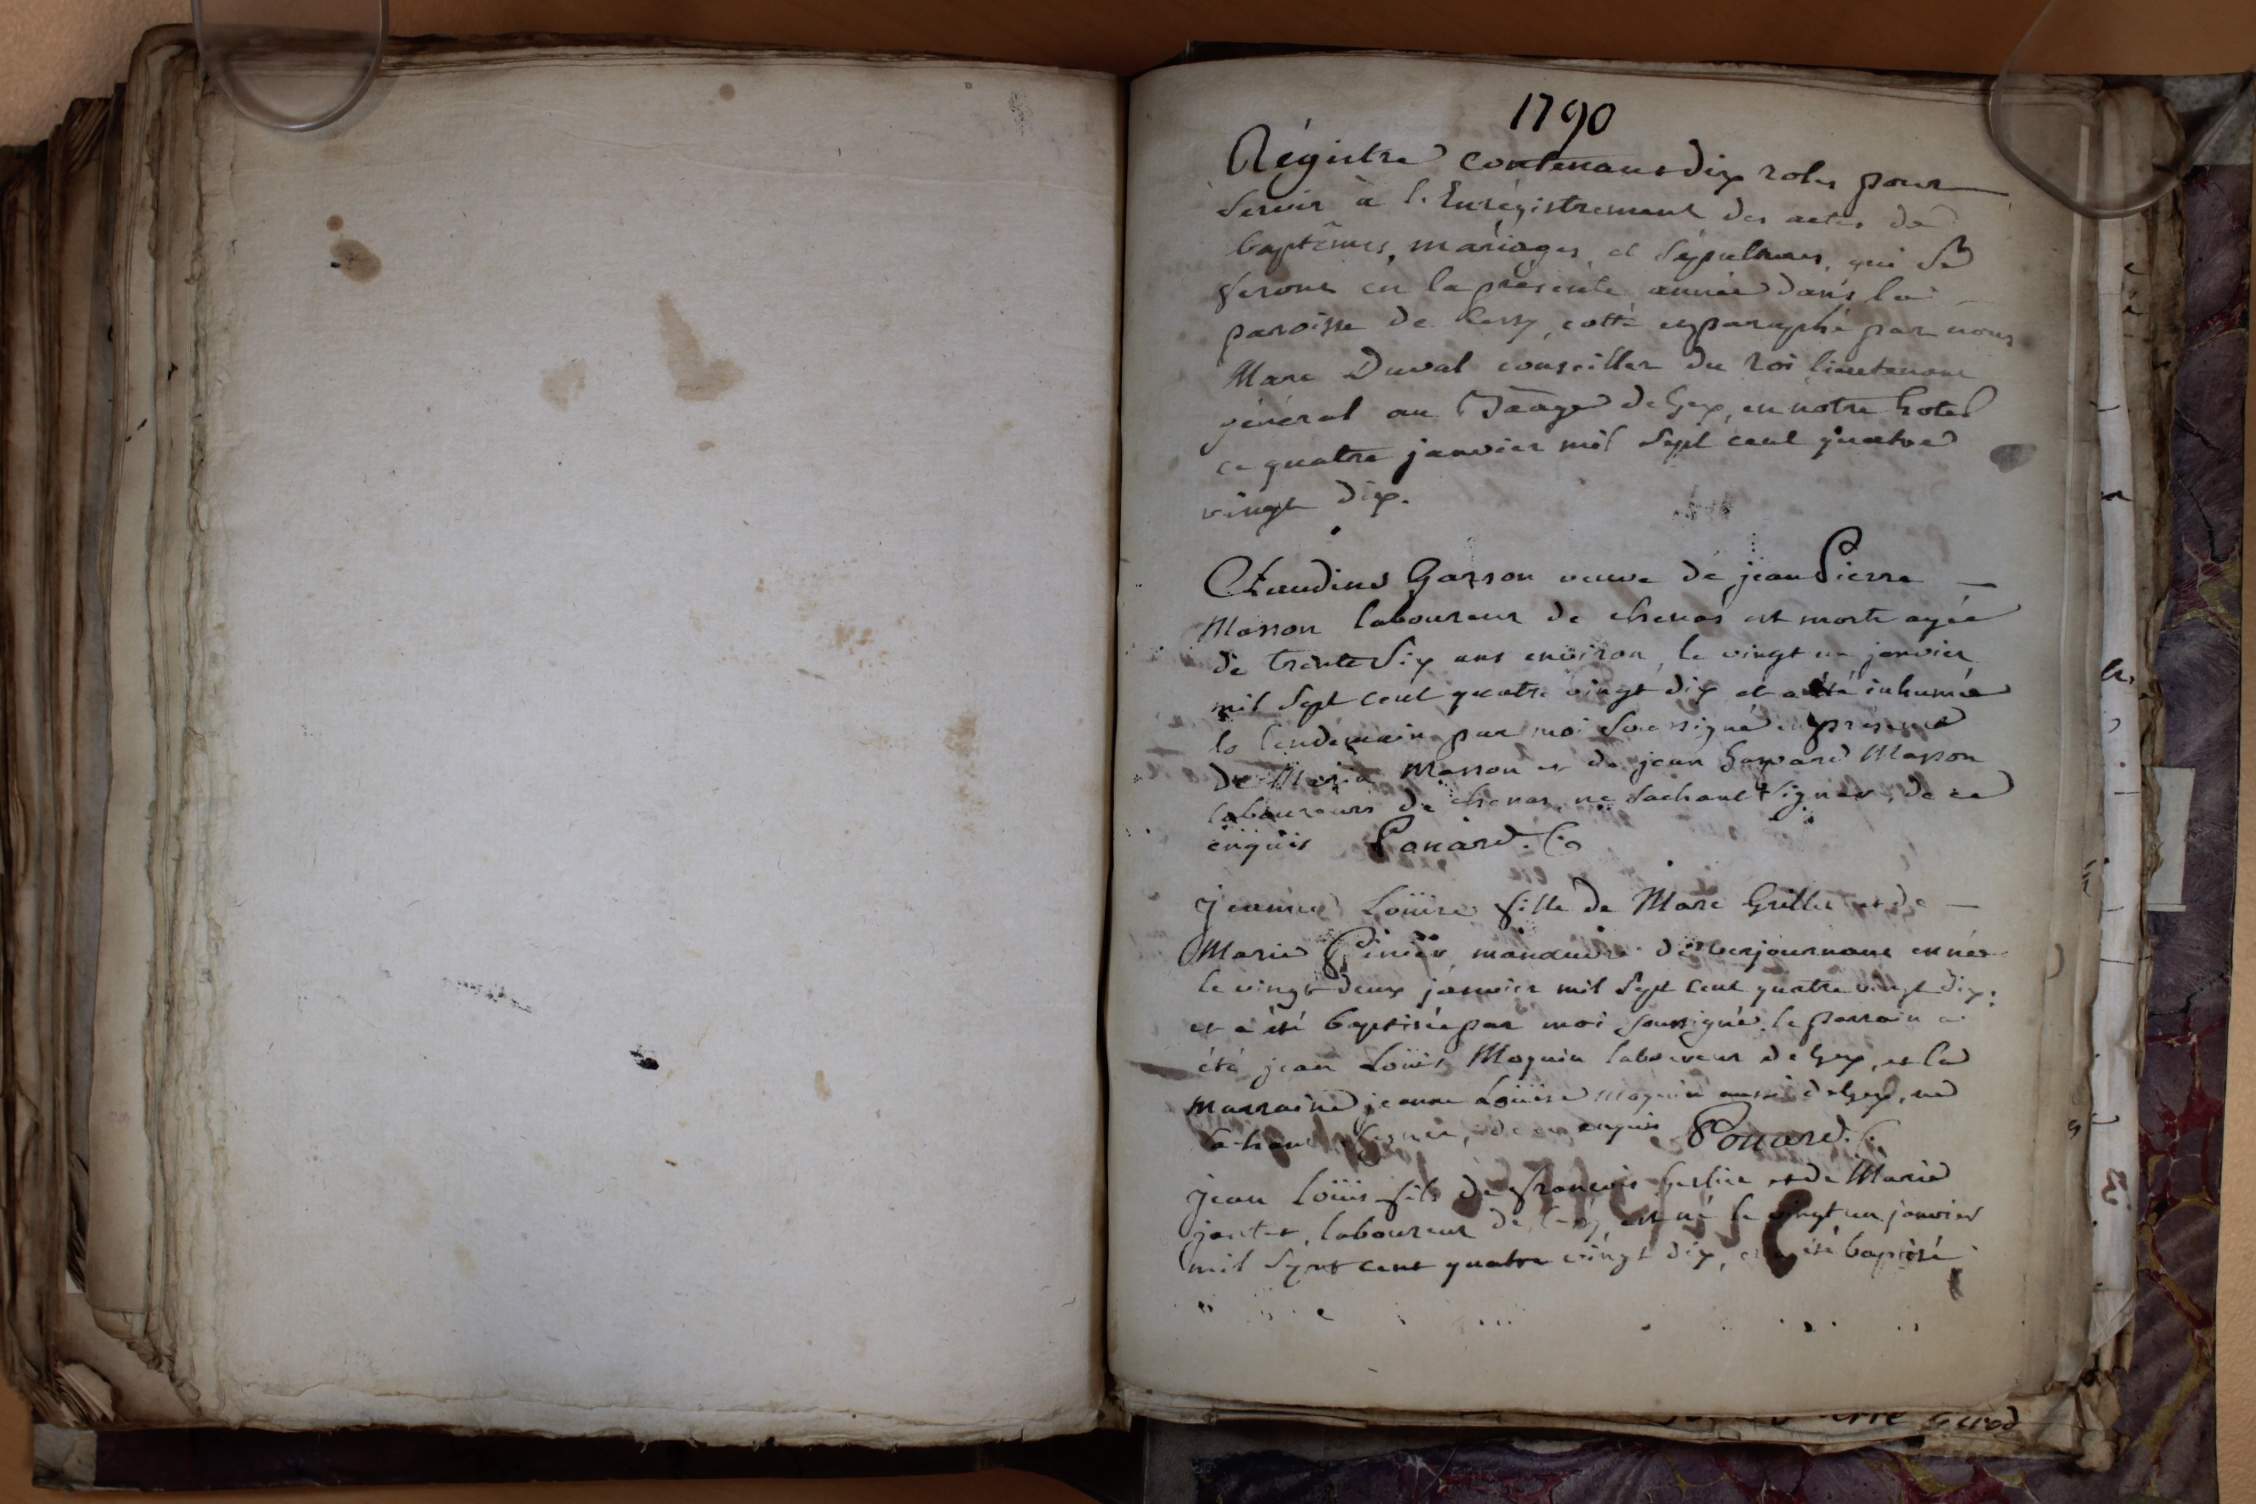 1790
Régistre contenant dix roles pour
servir à l'enrégistrement des actes de
baptêmes, mariages, et sépultures, qui se
feront en la présente année dans la
paroisse de Cessy, cotté et paraphé par nous
Marc Duval conseiller du roi lieutenant
général au Baage de Gex, en notre hotel
ce quatre janvier mil sept cent quatre
vingt dix.
Claudine Gasson veuve de jean Pierre
Masson laboureur de chenas est morte agée
de trente six ans environ, le vingt un janvier
mil sept cent quatre vingt dix et a été inhumée
le lendemain par moi soussigné en présence
de Masson et de jean Masson
laboureurs de chenas, ne sachant signer, de ce
enquis Ponard. C.
jeanne Loüise fille de Marc Grillet et de
Marie Pinier est née
le vingt deux janvier mil sept cent quatre vingt dix.
et a été baptisée par moi soussigné. le parrain a
été jean Loüis Moquin laboureur de Gex, et la
marraine jeanne Loüise Moquin aussi de Gex, ne
sachant signer, de ce enquis Ponard. C.
jean Loüis fils de françois et de Marie
laboureur de Cessy est né le vingt un janvier
mil sept cent quatre vingt dix, et a été baptisé
Girod